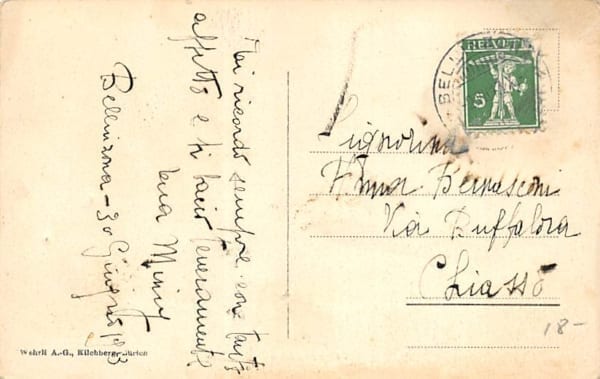 Mi ricordo sempre con tanto
affetto e ti bacio teneramente
tua Mimy
Bellinzona - 30 Giugno 1913
HELVETIA
5
BELLINZONA
Signorina
Anna Bernasconi
Via Buffalora
Chiasso
18-
Wehrli A.-G., Kilchberg-Zürich